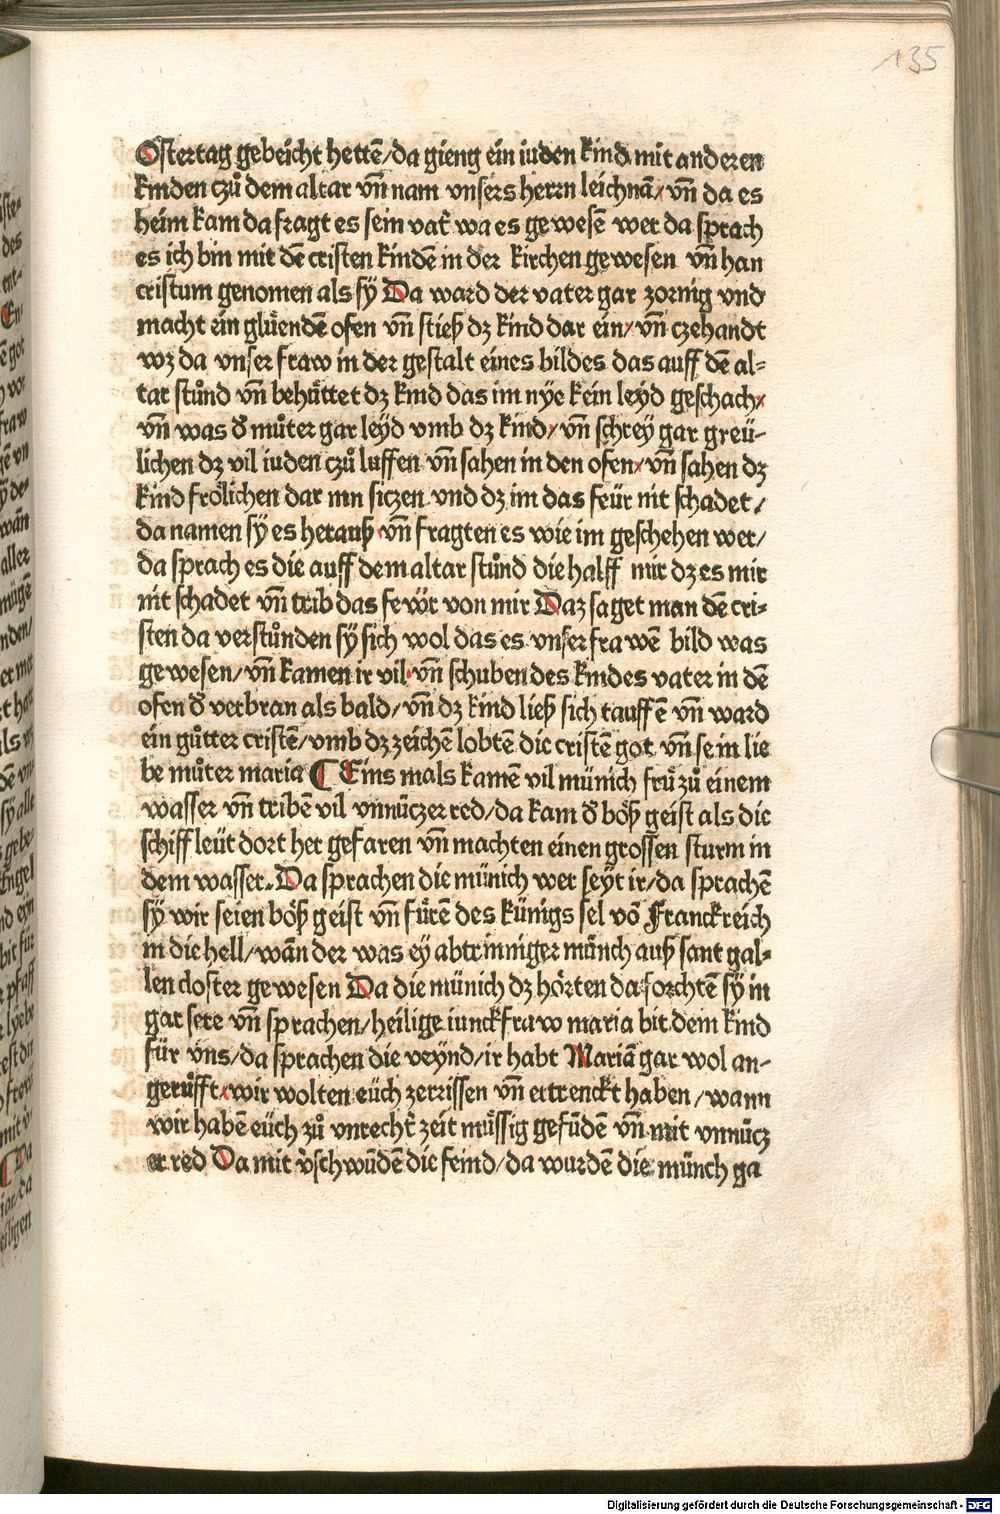 135
Ostertag gebeicht hettē/da gieng ein iuden kind mit anderen
kinden czů dem altar vn̄ nam vnsers herrn leichnā/ vn̄ da es
heim kam da fragt es sein vat̄ wa es gewesē wer da sprach
es ich bin mit dē cristen kindē in der kirchen gewesen vn̄ han
cristum genomen als sÿ Da ward der vater gar zornig vnd
macht ein glüendē ofen vn̄ stieß dz kind dar ein/ vn̄ czehandt
wz da vnser fraw in der gestalt eines bildes das auff dē al⸗
tar stůnd vn̄ behüttet dz kind das im nye kein leyd geschach/
vn̄ was d̄ můter gar leyd vmb dz kind/ vn̄ schreÿ gar greü⸗
lichen dz vil iuden czů luffen vn̄ sahen in den ofen/ vn̄ sahen dz
kind frölichen dar inn siczen vnd dz im das feür nit schadet/
da namen sÿ es herauß vn̄ fragten es wie im geschehen wer/
da sprach es die auff dem altar stůnd die halff mir dz es mir
nit schadet vn̄ trib das fewr von mir Daz saget man dē cri⸗
sten da verstůnden sÿ sich wol das es vnser frawē bild was
gewesen/vn̄ kamen ir vil vn̄ schuben des kindes vater in dē
ofen d̄ verbran als bald/vn̄ dz kind ließ sich tauffē vn̄ ward
ein gůtter cristē/vmb dz zeichē lobtē die cristē got vn̄ sein lie
be můter maria ¶ Eins mals kamē vil münich frü zů einem
wasser vn̄ tribē vil vnnüczer red/da kam d̄ böß geist als die
schiffleüt dort her gefaren vn̄ machten einen grossen sturm in
dem wasser. Da sprachen die münich wer seyt ir/da sprachē
sÿ wir seien böß geist vn̄ fürē des künigs sel vō Franckreich
in die hell/wān der was ey abtrinniger münch auß sant gal⸗
len closter gewesen Da die münich dz hörten da forchtē sÿ in
gar sere vn̄ sprachen/heilige iunckfraw maria bit dem kind
für vns/da sprachen die veynd/ir habt Mariā gar wol an⸗
gerůfft/wir wolten eüch zerrissen vn̄ ertrenckt haben/wann
wir habē eüch zů vnrecht̄ zeit müssig gefūdē vn̄ mit vnnücz
er red Da mit v̄schwūdē die feind/da wurdē die münch ga
Digitalisierung gefördert durch die Deutsche Forschungsgemeinschaft - DFG